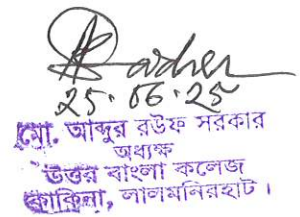 25.06.25
মো. আব্দুর রউফ সরকার
অধ্যক্ষ
উত্তর বাংলা কলেজ
কাকিনা, লালমনিরহাট।